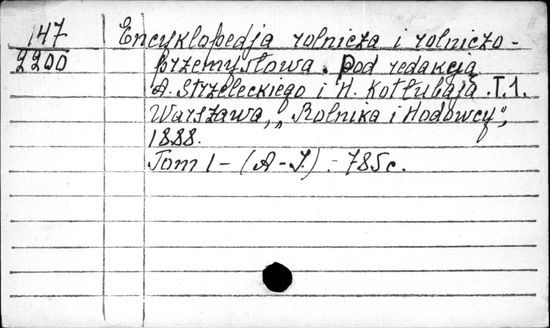 147 Encyklopedja rolnicza i rolniczo-
2200 przemysłowa. Pod redakcją
A. Strzeleckiego i H. Kotłubaja. T.1.
Warszawa, „Rolnika i Hodowcy",
1888.
Tom I - (A-J.). - 785c.